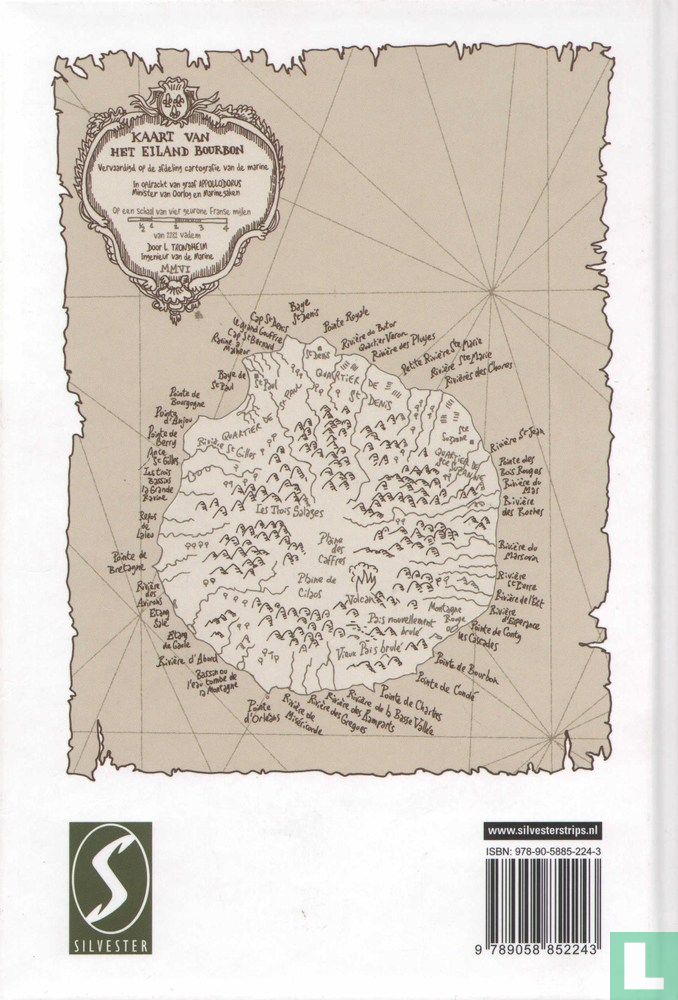 KAART VAN
HET EILAND BOURBON
Vervaardigd op de afdeling cartografie van de marine
In opdracht van graaf APPOLLODORUS
Minister van Oorlog en Marinezaken
Op een schaal van vier geurone Franse mijlen
½ 1 2 3 4
van 2282 vadem
Door L. TRONDHEIM
Ingenieur van de Marine
MMVI
Baye
St Denis
Cap St Denis
le grand Gouffre
Cap St Bernard
Ravine à
Malheur
Pointe Royale
Rivière du Butor
Quartier Varon
Rivière des Pluyes
Petite Rivière Ste Marie
Rivière Ste Marie
Rivières des Chores
St Denis
QUARTIER DE
St DENIS
Baye de
St Paul
St Paul
QUARTIER DE
St PAUL
Pointe de
Bourgogne
Pointe
d'Anjou
Pointe de
Berry
Ance
St Gilles
Les trois
Bassins
la Grande
Ravine
Repos
de
Laleu
Pointe de
Bretagne
Rivière
des
Avirons
Etang
Salé
Etang
du Gaole
Rivière d'Abord
Bassin ou
l'eau tombe de
la Montagne
Rivière St Gilles
Ste
Suzanne
QUARTIER DE
Ste SUZANNE
Rivière St Jean
Pointe des
Bois Rouges
Rivière du
Mas
Rivière
des Roches
Rivière du
Marsovin
Rivière
St Pierre
Rivière de l'Est
Rivière
d'Esperance
Pointe de Conty
les Cascades
Pointe de Bourbon
Pointe de Condé
Pointe de Chartes
Rivière de la Basse Vallée
Rivière des Ramparts
Rivière des Gregoes
Rivière de
Miséricorde
Pointe
d'Orléans
Les Thois Salages
Plaine
des
Caffres
Plaine de
Cilaos
Volcan
Montagne
Rouge
Païs nouvellement
brulé
Vieux Païs brulé
SILVESTER
www.silvesterstrips.nl
ISBN: 978-90-5885-224-3
9 789058 852243
L